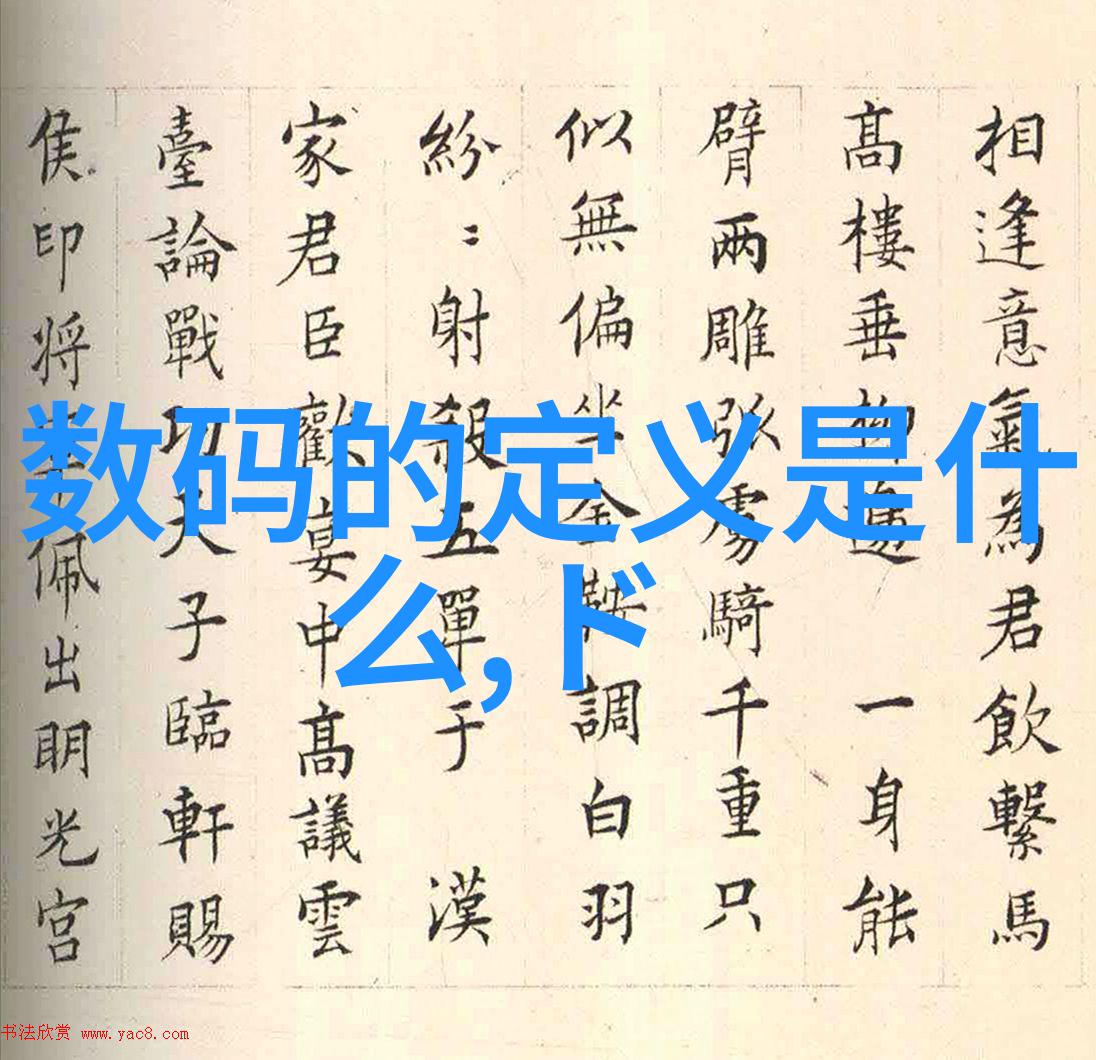 相逢意氣為君飲繫馬
髙樓垂柳邊 一身能
臂兩雕弧虜騎千重只
似無偏坐金鞍調白羽
紛〻射殺五單于 漢
家君臣歡宴中髙議雲
臺論戰功天子臨軒賜
侯印将軍佩出明光宮
数码的定义是什
么,ド
书法欣赏 www.yac8.com